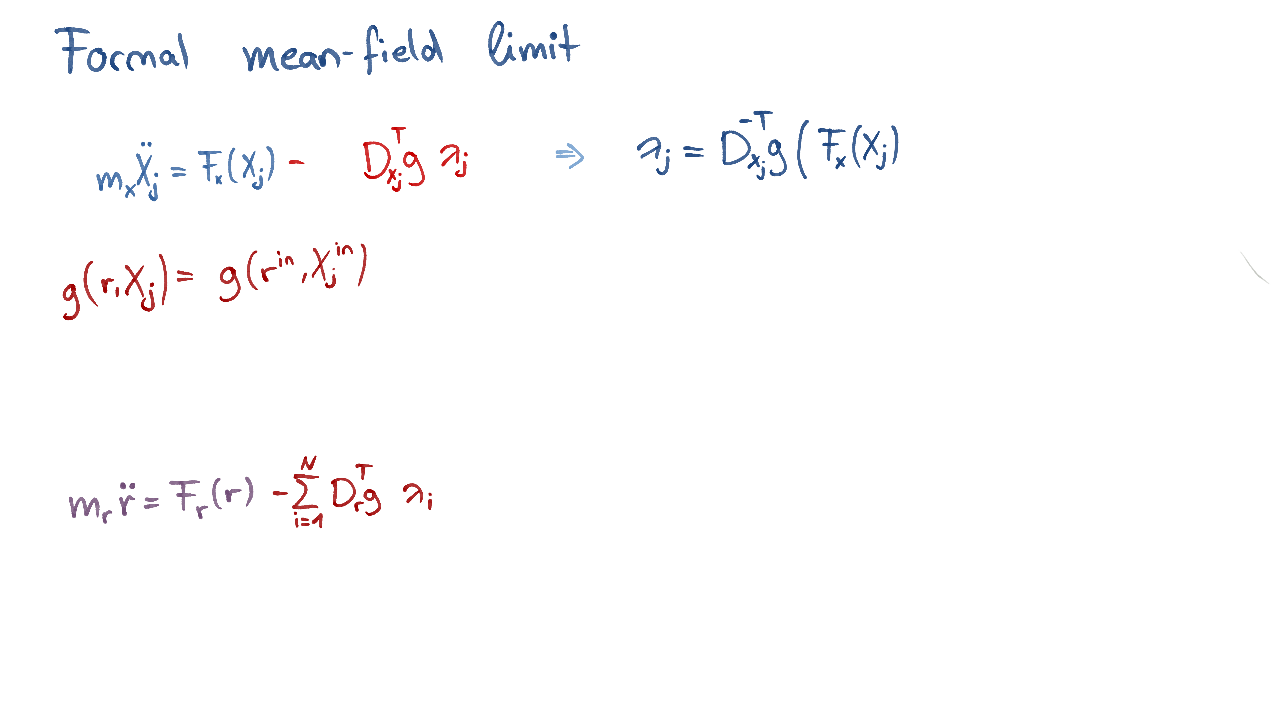 Formal mean-field limit
mₓẌⱼ = Fₓ(Xⱼ) - D_{xⱼ}^T g λⱼ ⇒ λⱼ = D_{xⱼ}^{-T} g ( Fₓ(Xⱼ)
g(r, Xⱼ) = g(r^{in}, Xⱼ^{in})
m_r r̈ = F_r(r) - ∑_{i=1}^{N} D_r^T g λᵢ